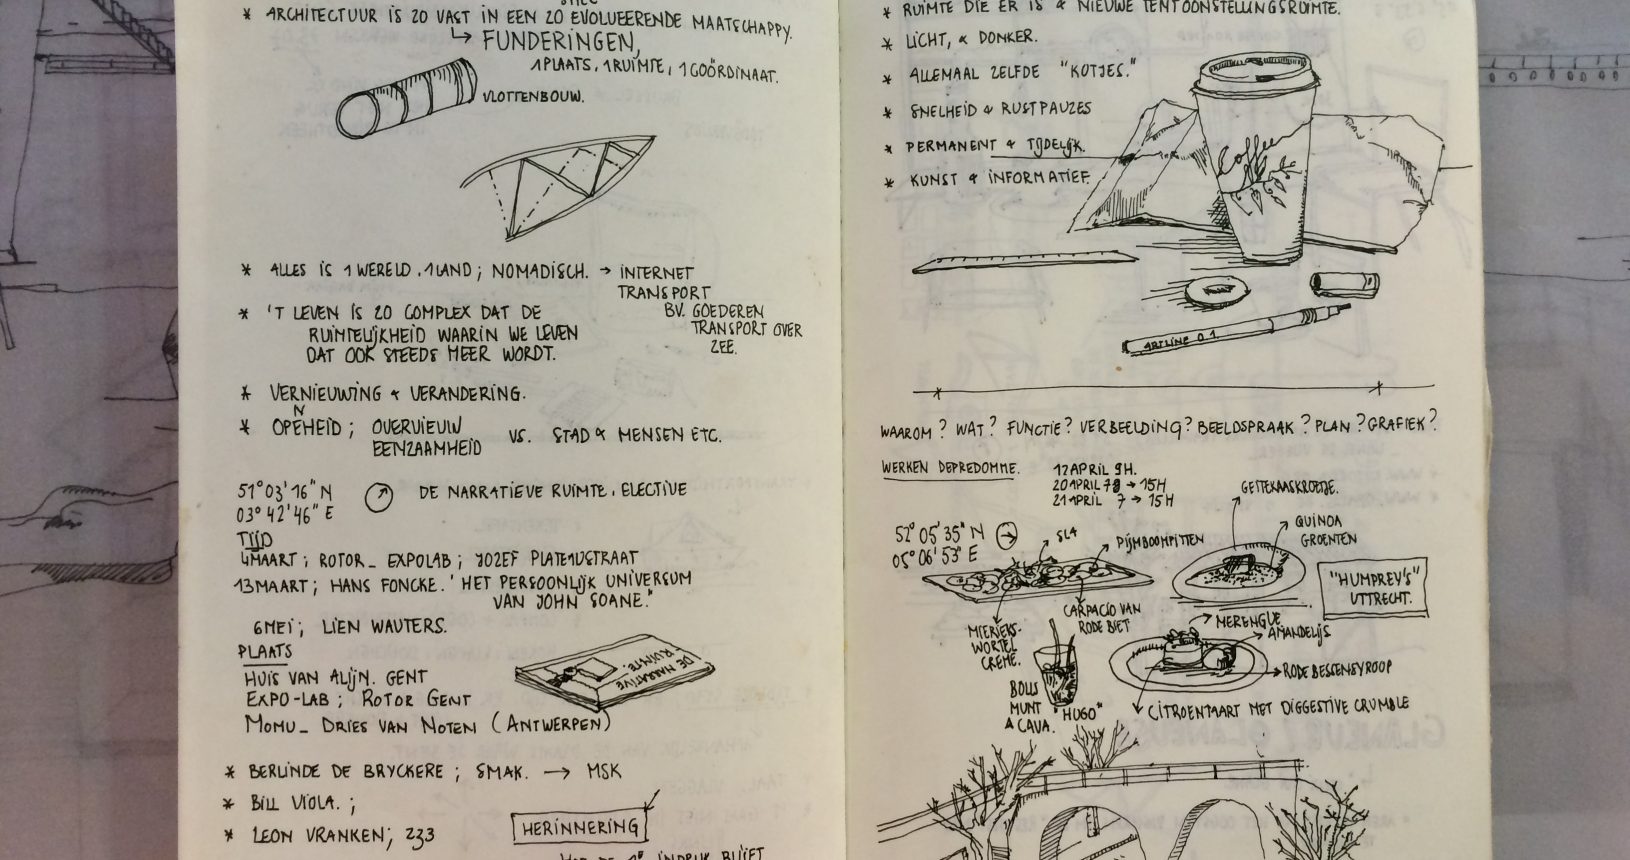 * ARCHITECTUUR IS ZO VAST IN EEN ZO EVOLUEERENDE MAATSCHAPPY.
FUNDERINGEN,
1 PLAATS, 1 RUIMTE, 1 COÖRDINAAT.
VLOTTENBOUW.
* ALLES IS 1 WERELD, 1 LAND; NOMADISCH. → INTERNET
TRANSPORT
BV. GOEDEREN
TRANSPORT OVER
ZEE.
* 'T LEVEN IS ZO COMPLEX DAT DE
RUIMTELIJKHEID WAARIN WE LEVEN
DAT OOK STEEDS MEER WORDT.
* VERNIEUWING & VERANDERING.
* OPENHEID; OVERVIEUW
EENZAAMHEID
VS. STAD & MENSEN ETC.
51° 03' 16" N
03° 42' 46" E
DE NARRATIEVE RUIMTE, ELECTIVE
TIJD
4 MAART; ROTOR_ EXPOLAB; JOZEF PLATEAUSTRAAT
13 MAART; HANS FONCKE. 'HET PERSOONLIJK UNIVERSUM
VAN JOHN SOANE."
6 MEI; LIEN WAUTERS.
PLAATS
HUIS VAN ALIJN. GENT
EXPO-LAB; ROTOR GENT
MOMU_ DRIES VAN NOTEN (ANTWERPEN)
DE NARRATIEVE
RUIMTE.
* BERLINDE DE BRYCKERE; SMAK. → MSK
* BILL VIOLA.;
* LEON VRANKEN; 233
HERINNERING
* RUIMTE DIE ER IS & NIEUWE TENTOONSTELLINGSRUIMTE.
* LICHT, & DONKER.
* ALLEMAAL ZELFDE "KOTJES."
* SNELHEID & RUSTPAUZES
* PERMANENT & TIJDELIJK.
* KUNST & INFORMATIEF.
Coffee
ARTLINE 0.1
WAAROM? WAT? FUNCTIE? VERBEELDING? BEELDSPRAAK? PLAN? GRAFIEK?
WERKEN DEPREDOMME.
12 APRIL 9H.
20 APRIL → 15H
21 APRIL 7 → 15H
52° 05' 35" N
05° 06' 53" E
SLA
PIJMBOOMPITTEN
GEITEKAASKROETJE.
QUINOA
GROENTEN
"HUMPREY'S"
UTTRECHT.
MIERIEKS-
WORTEL
CREME.
CARPACIO VAN
RODE BIET
MERENGUE
AMANDELIJS
RODE BESSENSYROOP
BOLLS
MUNT
& CAVA.
"HUGO"
CITROENTAART MET DIGGESTIVE CRUMBLE